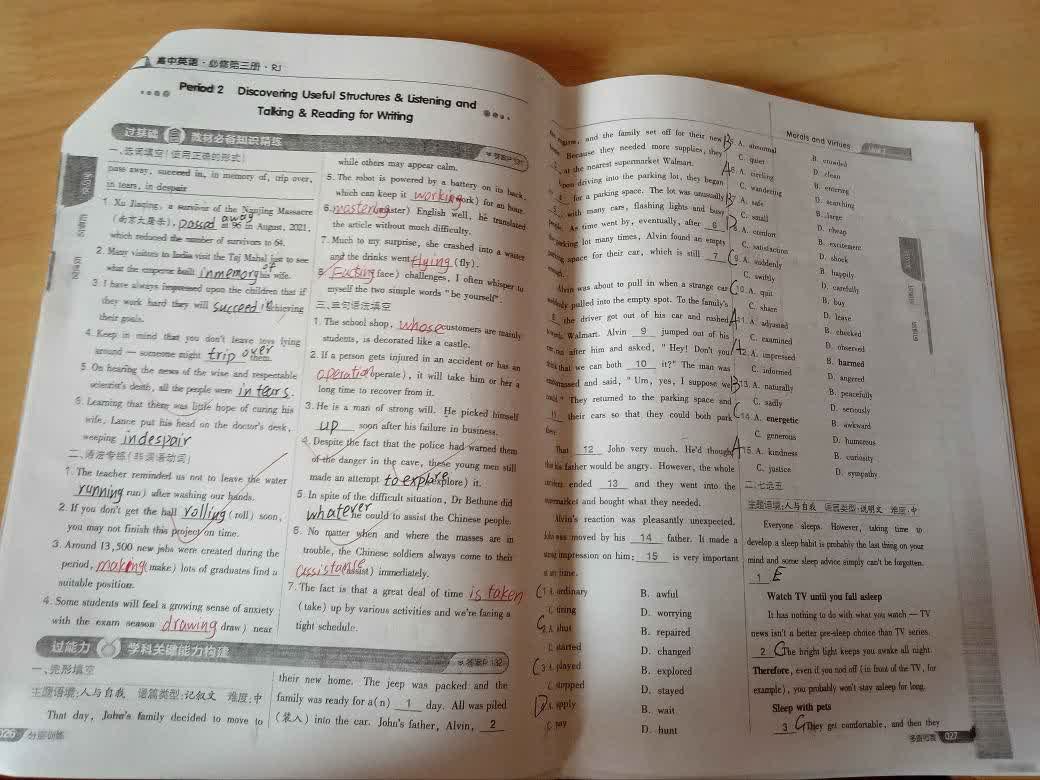 高中英语·必修第三册·RJ
Period 2 Discovering Useful Structures & Listening and
Talking & Reading for Writing
过基础 教材必备知识精练
一、选词填空(使用正确的形式)
pass away, succeed in, in memory of, trip over,
in tears, in despair
1. Xu Jiaqing, a survivor of the Nanjing Massacre
(南京大屠杀), passed away at 96 in August, 2021,
which reduced the number of survivors to 64.
2. Many visitors to India visit the Taj Mahal just to see
what the emperor built in memory of his wife.
3. I have always impressed upon the children that if
they work hard they will succeed in achieving
their goals.
4. Keep in mind that you don't leave toys lying
around — someone might trip over them.
5. On hearing the news of the wise and respectable
scientist's death, all the people were in tears.
6. Learning that there was little hope of curing his
wife, Lance put his head on the doctor's desk,
weeping indespair
二、语法专练(非谓语动词)
1. The teacher reminded us not to leave the water
running run) after washing our hands.
2. If you don't get the ball rolling (roll) soon,
you may not finish this project on time.
3. Around 13,500 new jobs were created during the
period, making make) lots of graduates find a
suitable position.
4. Some students will feel a growing sense of anxiety
with the exam season drawing draw) near
while others may appear calm.
5. The robot is powered by a battery on its back,
which can keep it working ork) for an hour.
6. English well, he translated
the article without much difficulty.
7. Much to my surprise, she crashed into a waiter
and the drinks went flying (fly).
8. face) challenges, I often whisper to
myself the two simple words "be yourself".
三、单句语法填空
1. The school shop, whose customers are mainly
students, is decorated like a castle.
2. If a person gets injured in an accident or has an
operation operate), it will take him or her a
long time to recover from it.
3. He is a man of strong will. He picked himself
up soon after his failure in business.
4. Despite the fact that the police had warned them
of the danger in the cave, these young men still
made an attempt to explore explore) it.
5. In spite of the difficult situation, Dr Bethune did
whatever he could to assist the Chinese people.
6. No matter when and where the masses are in
trouble, the Chinese soldiers always come to their
assistanse assist) immediately.
7. The fact is that a great deal of time is taken
(take) up by various activities and we're facing a
tight schedule.
过能力 学科关键能力构建
答案P132
一、完形填空
主题语境:人与自我 语篇类型:记叙文 难度:中
That day, John's family decided to move to
their new home. The jeep was packed and the
family was ready for a(n) 1 day. All was piled
(装入) into the car. John's father, Alvin, 2
026 分层训练
Morals and Virtues
, and the family set off for their new
Because they needed more supplies, they
at the nearest supermarket Walmart.
upon driving into the parking lot, they began
for a parking space. The lot was unusually
with many cars, flashing lights and busy
people. As time went by, eventually, after 6
parking lot many times, Alvin found an empty
parking space for their car, which is still 7
enough.
Alvin was about to pull in when a strange car
suddenly pulled into the empty spot. To the family's
8 the driver got out of his car and rushed
Walmart. Alvin 9 jumped out of his
after him and asked, "Hey! Don't you
think that we can both 10 it?" The man was
embarrassed and said, "Um, yes, I suppose we
could." They returned to the parking space and
11 their cars so that they could both park
there.
That 12 John very much. He'd thought
that his father would be angry. However, the whole
ended 13 and they went into the
supermarket and bought what they needed.
Alvin's reaction was pleasantly unexpected.
John was moved by his 14 father. It made a
impression on him; 15 is very important
at any time.
1. A. ordinary B. awful
C. tiring D. worrying
2. A. shut B. repaired
C. started D. changed
3. A. played B. explored
C. stopped D. stayed
4. A. apply B. wait
C. pay D. hunt
B 5. A. abnormal B. crowded
C. quiet D. clean
A 6. A. circling B. entering
C. wandering D. searching
7. A. safe B. large
C. small D. cheap
8. A. comfort B. excitement
C. satisfaction D. shock
C 9. A. suddenly B. happily
C. swiftly D. carefully
C 10. A. quit B. buy
C. share D. leave
A 11. A. adjusted B. checked
C. examined D. observed
A 12. A. impressed B. harmed
C. informed D. angered
B 13. A. naturally B. peacefully
C. sadly D. seriously
C 14. A. energetic B. awkward
C. generous D. humorous
A 15. A. kindness B. curiosity
C. justice D. sympathy
二、七选五
主题语境:人与自我 语篇类型:说明文 难度:中
Everyone sleeps. However, taking time to
develop a sleep habit is probably the last thing on your
mind and some sleep advice simply can't be forgotten.
1 E
Watch TV until you fall asleep
It has nothing to do with what you watch — TV
news isn't a better pre-sleep choice than TV series.
2 C The bright light keeps you awake all night.
Therefore, even if you nod off (in front of the TV, for
example), you probably won't stay asleep for long.
Sleep with pets
3 G They get comfortable, and then they
027